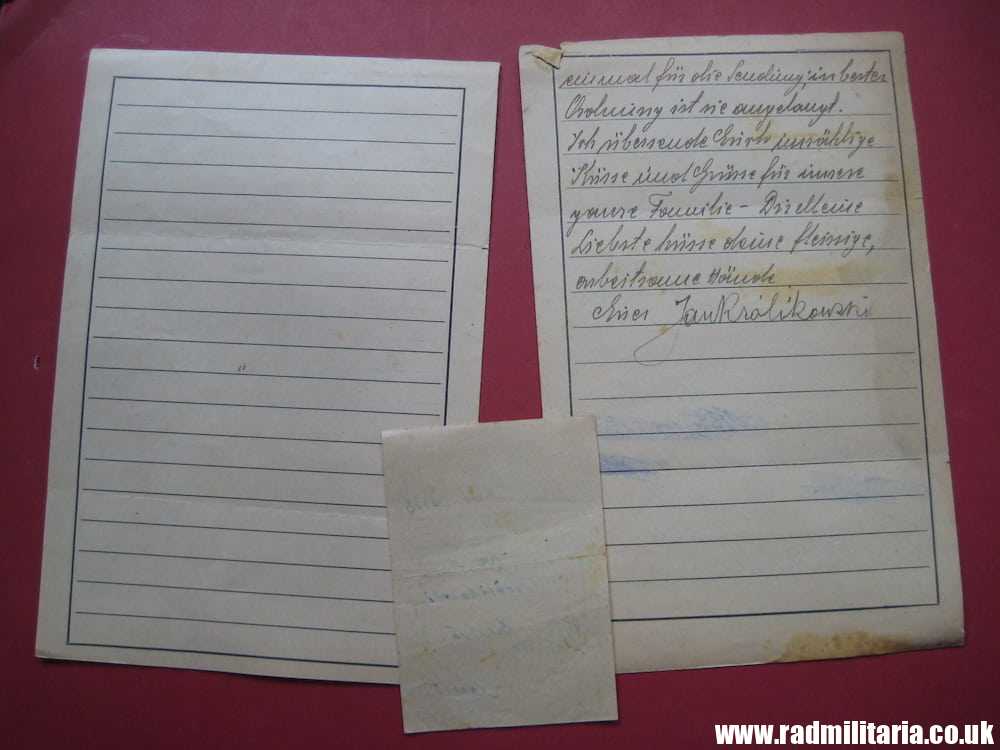 einmal für die Sendung, in bester
Ordnung ist sie angelangt.
Ich übersende Euch unzählige
Küsse und Grüsse für unsere
ganze Familie - Dir Meine
Liebste küsse deine fleissige,
arbeitsame Hände
Euer Jan Królikowski
www.radmilitaria.co.uk